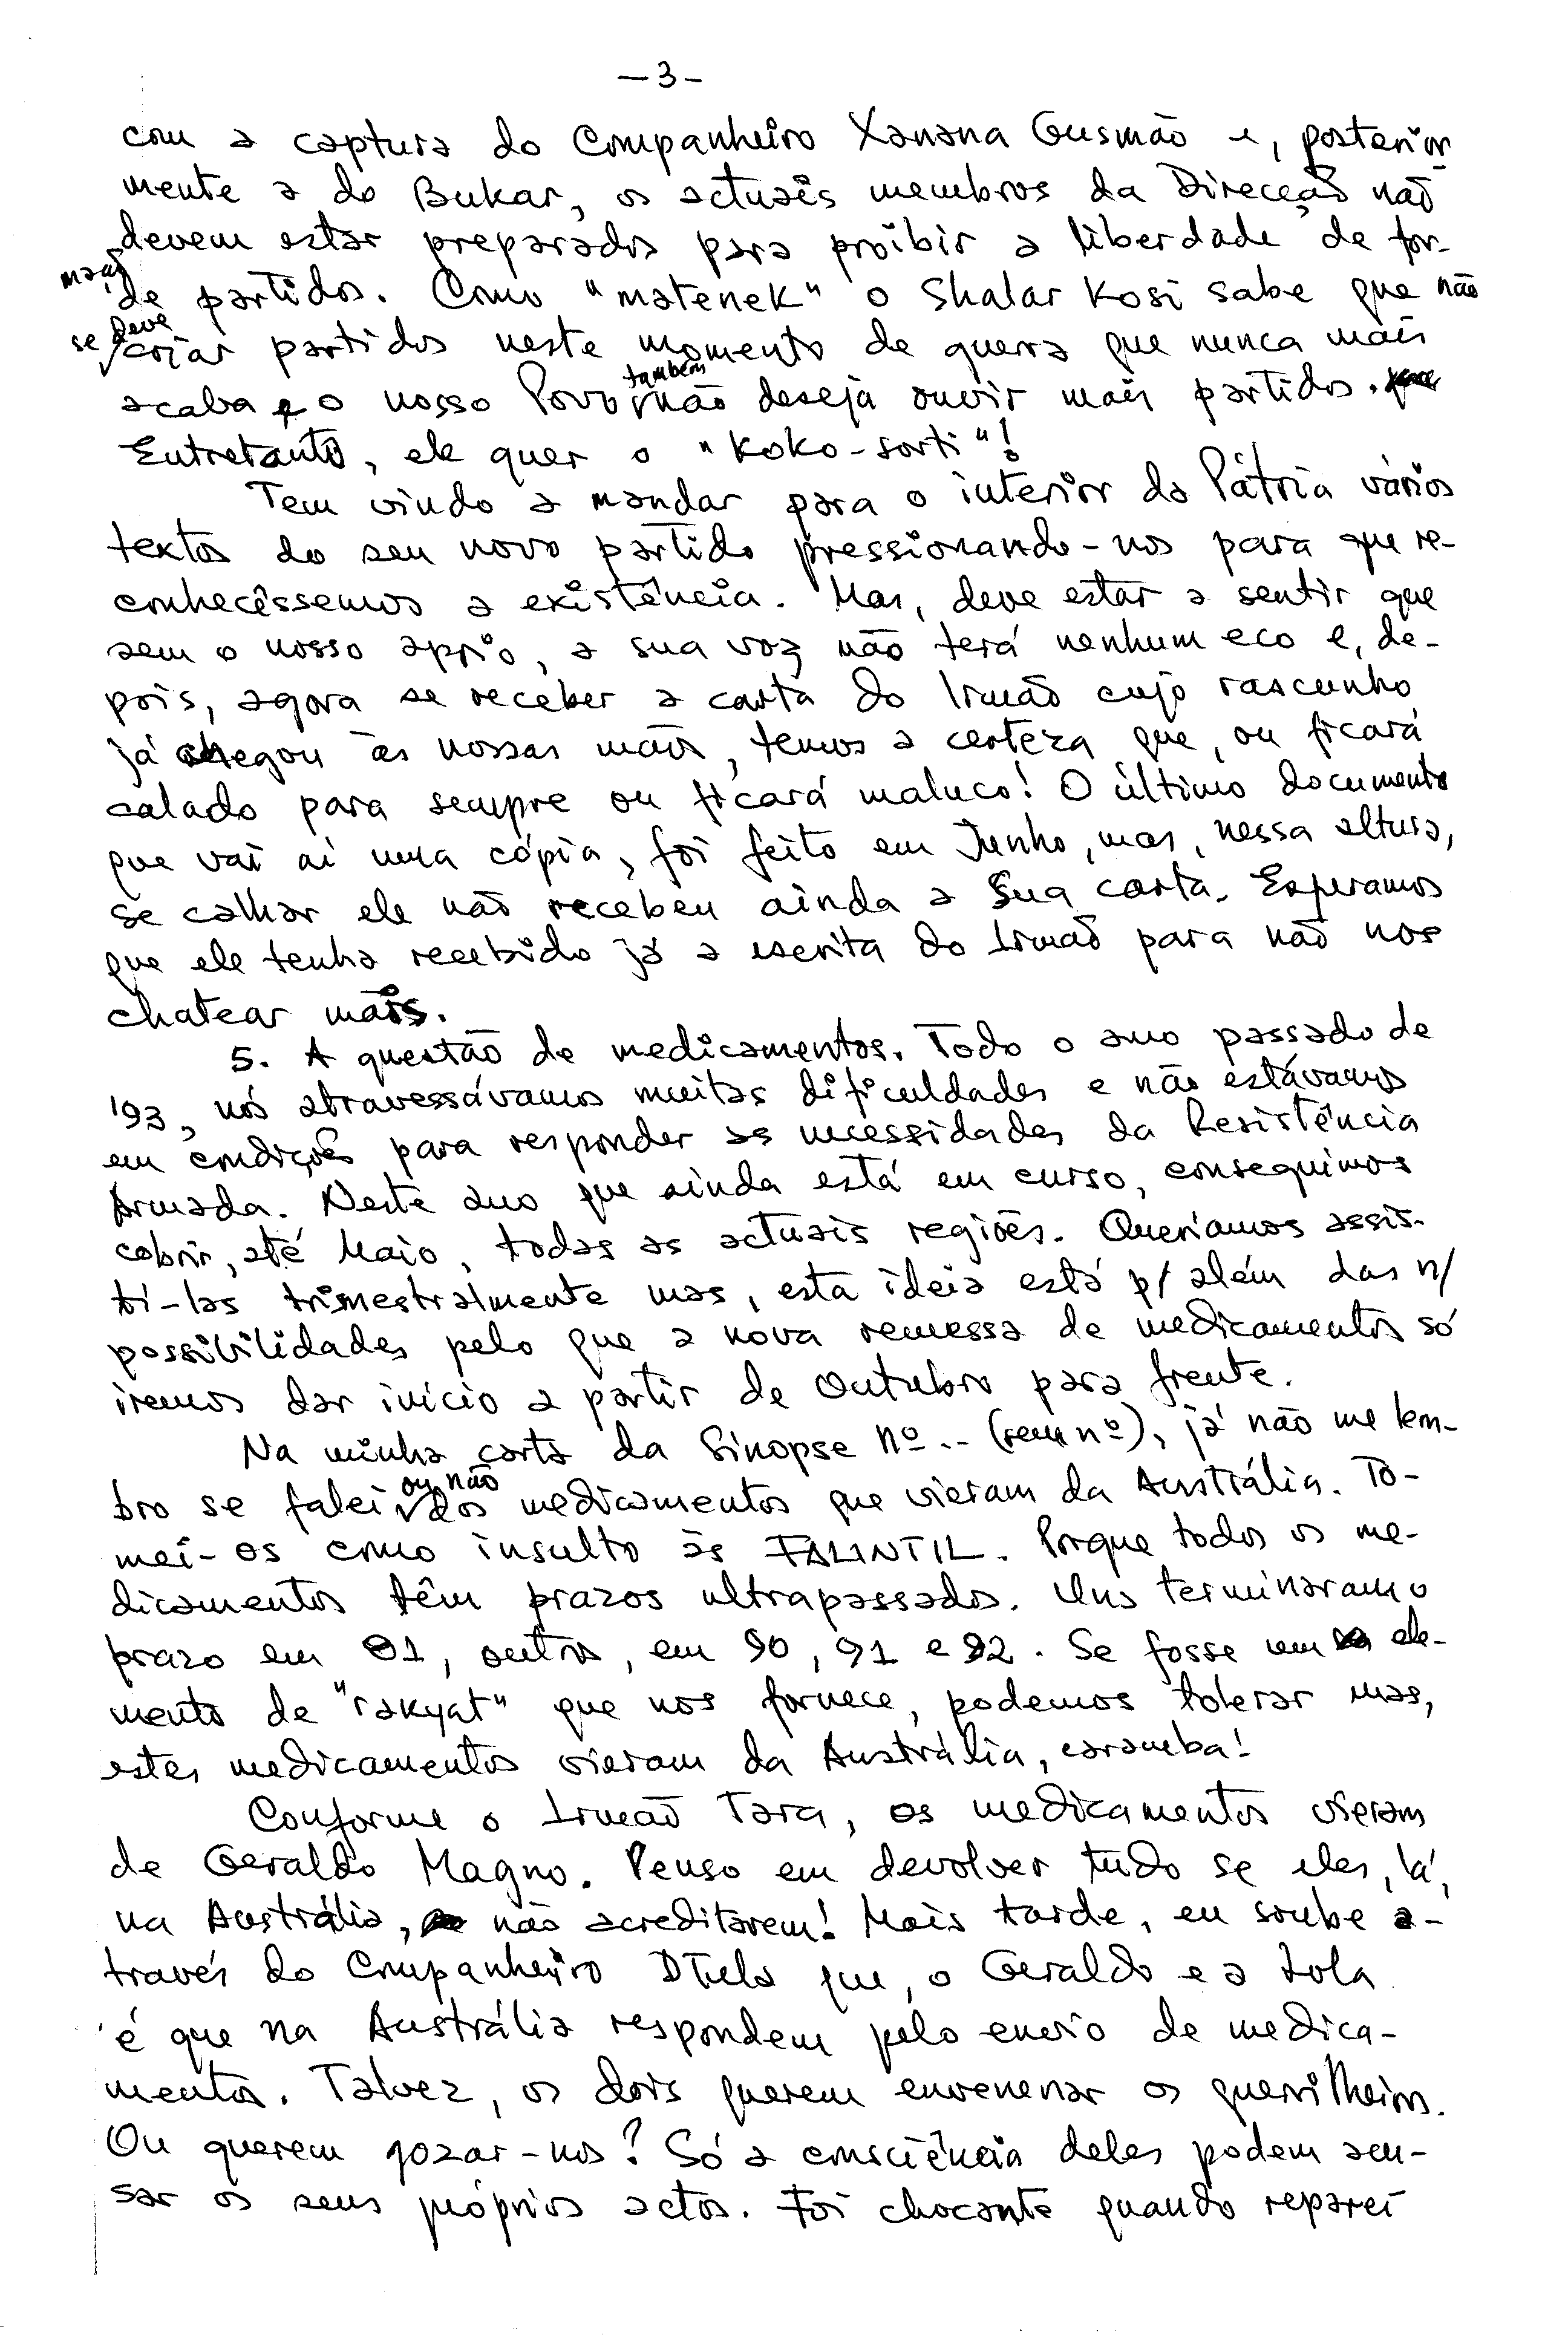 — 3 -
com a captura do Companheiro Xanana Gusmão e, posterior-
mente a do Bukar, os actuais membros da Direcção não
devem estar preparados para proibir a liberdade de for-
mação de partidos. Como "matenek" o Shalar Kosi sabe que não
se deve criar partidos neste momento de guerra que nunca mais
acaba e o nosso Povo também não deseja ouvir mais partidos.
Entretanto, ele quer o "Koko-sorti"!
Tem vindo a mandar para o interior da Pátria vários
textos do seu novo partido pressionando-nos para que re-
conhecêssemos a existência. Mas, deve estar a sentir que
sem o nosso apoio, a sua voz não terá nenhum eco e, de-
pois, agora se receber a carta do Irmão cujo rascunho
já chegou às nossas mãos, temos a certeza que, ou ficará
calado para sempre ou ficará maluco! O último documento
que vai aí numa cópia, foi feito em Junho, mas, nessa altura,
se calhar ele não recebeu ainda a Sua carta. Esperamos
que ele tenha recebido já a escrita do Irmão para não nos
chatear mais.
5. A questão de medicamentos. Todo o ano passado de
'93, nós atravessávamos muitas dificuldades e não estávamos
em condições para responder as necessidades da Resistência
Armada. Neste ano que ainda está em curso, conseguimos
cobrir, até Maio, todas as actuais regiões. Queríamos assis-
ti-las trimestralmente mas, esta ideia está p/ além das n/
possibilidades pelo que a nova remessa de medicamentos só
iremos dar início a partir de Outubro para frente.
Na minha carta da Sinopse Nº -- (sem nº), já não me lem-
bro se falei ou não dos medicamentos que vieram da Austrália. To-
mei-os como insulto às FALINTIL. Porque todos os me-
dicamentos têm prazos ultrapassados. Uns terminaram o
prazo em 81, outros, em 90, 91 e 92. Se fosse um ele-
mento de "rakyat" que nos fornece, podemos tolerar mas,
estes medicamentos vieram da Austrália, caramba!
Conforme o Irmão Tara, os medicamentos vieram
de Geraldo Magno. Penso em devolver tudo se eles, lá,
na Austrália, não acreditarem! Mais tarde, eu soube a-
través do Companheiro que, o Geraldo e a Lola
é que na Austrália respondem pelo envio de medica-
mentos. Talvez, os dois querem envenenar os guerrilheiros.
Ou querem gozar-nos? Só a consciência deles podem acu-
sar os seus próprios actos. Foi chocante quando reparei